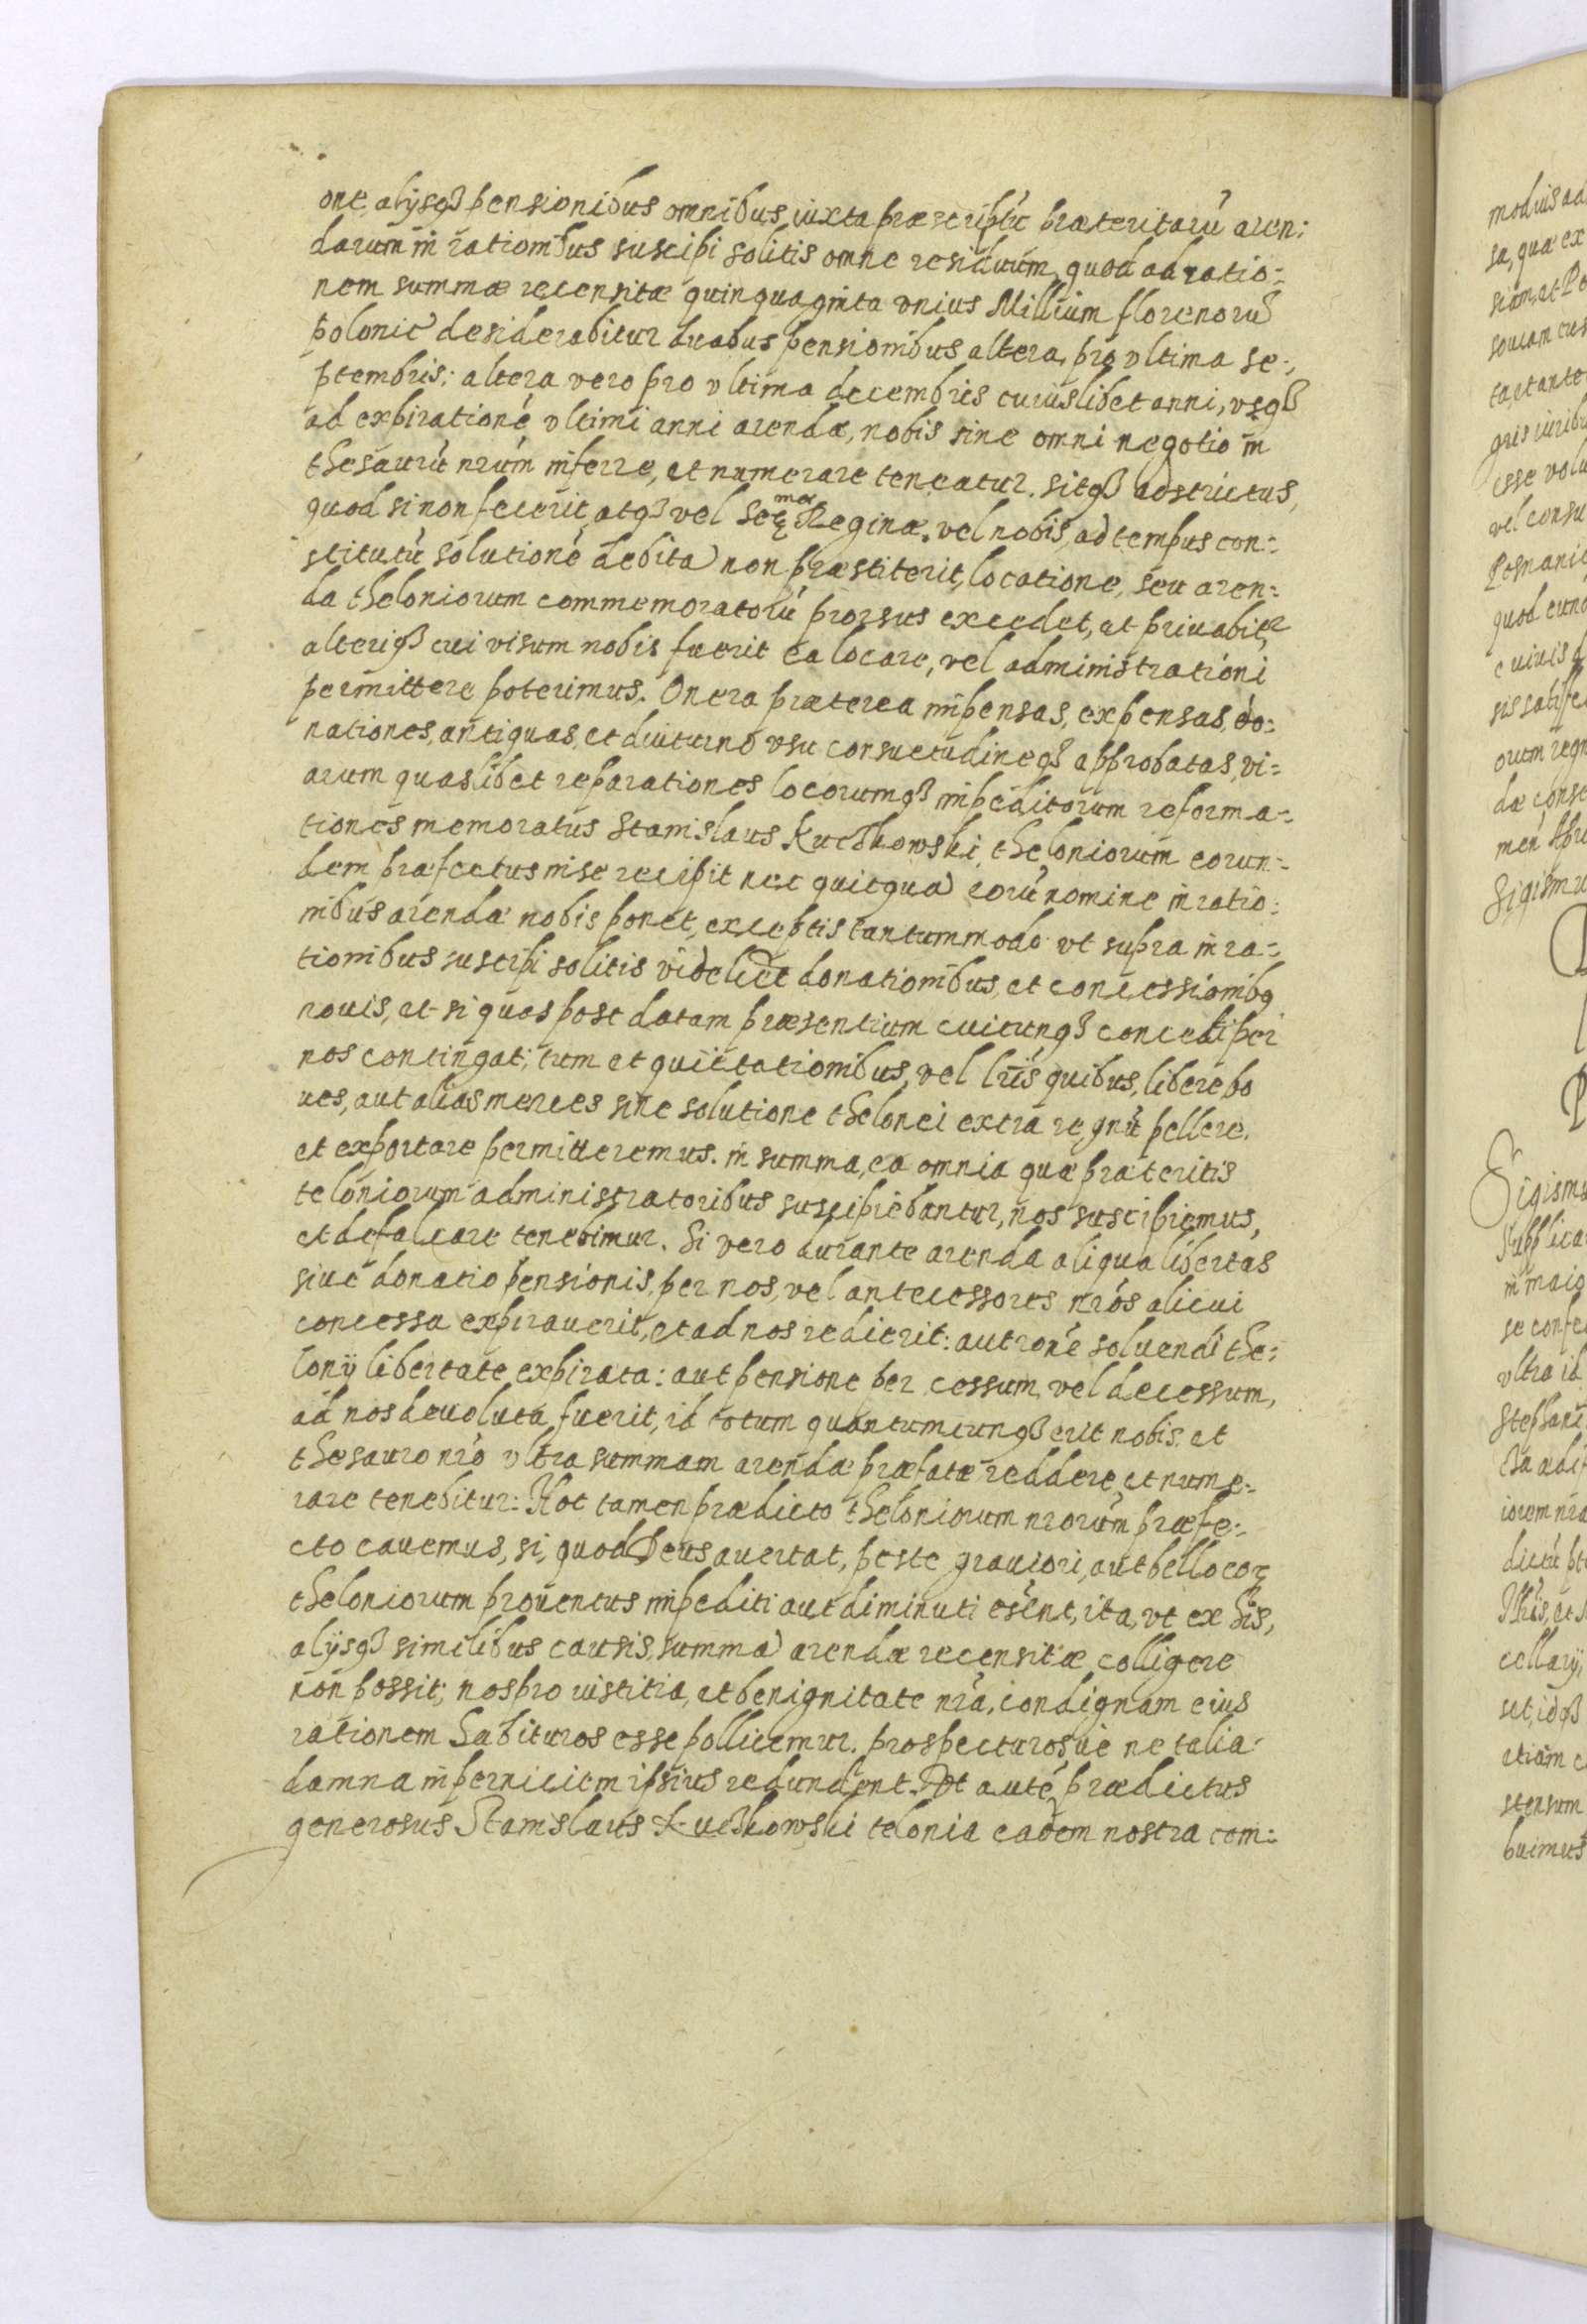 one, alysqꝫ pensionibus omnibus iuxta præscriptũ præteritarũ aren:
darum in rationibus suscipi solitis omne residuum, quod ad ratio-
nem summæ recensitæ quinquaginta vnius Millium florenorũ
polonic̃ desiderabitur duabus pensionibus altera, pro vltima se-
ptembris: altera vero pro vltima decembris cuiuslibet anni, vsqꝫ
ad expirationẽ vltimi anni arendæ, nobis sine omni negotio in
thesaurũ nrũm inferre, et numerare teneatur. sitqꝫ adstrictus,
quod si non fecerit, atqꝫ vel Seꝝ mæ Reginæ. vel nobis, ad tempus con-
stitutũ solutionẽ debitã non præstiterit, locatione, seu aren-
da theloniorum commemoratorũ prorsus excedet, et priuabitr
alteriqꝫ cui visum nobis fuerit ea locare, vel administrationi
permittere poterimus. Onera præterea impensas, expensas, do-
nationes, antiquas, et diuturno vsu consuetudineqꝫ approbatas, vi-
arum quaslibet reparationes locorumqꝫ impeditorum reforma-
tiones memoratus Stanislaus Kuczkowski, theloniorum eorun-
dem præfectus in se recipit nec quicquã eorũ nomine in ratio-
nibus arendæ nobis ponet, exceptis tantummodo vt supra in ra-
tionibus suscipi solitis videlicet donationibus, et concessionibꝫ
nouis, et si quas post datam præsentium cuicunqꝫ concedi per
nos contingat; tum et quietationibus, vel lrĩs quibus, libere bo
ues, aut alias merces sine solutione thelonei extra regnũ pellere.
et exportare permitteremus. in summa, ea omnia quæ præteritis
teloniorum administratoribus suscipiebantur, nos suscipiemus,
et defalcare tenebimur. Si vero durante arenda aliqua libertas
siue donatio pensionis, per nos, vel antecessores nrõs alicui
concessa expirauerit, et ad nos redierit: aut ronẽ soluendi the-
lonij libertate expirata: aut pensione per cessum vel decessum,
ad nos deuoluta fuerit, id totum quantumcunqꝫ erit nobis. et
thesauro nrõ vltra summam arendæ præfatæ reddere, et nume-
rare tenebitur: Hoc tamen prædicto theloniorum nrorũm præfe-
cto cauemus, si, quod Deus auertat, peste grauiori, aut bello eoꝝ
theloniorum prouentus impediti aut diminuti esẽnt, ita, vt ex his,
alysqꝫ similibus causis, summã arendæ recensitæ colligere
non possit; nos pro iustitia, et benignitate nrã, condignam eius
rationem habituros esse pollicemur. prospecturosue ne talia
damna in perniciem ipsius redundent. Vt autẽ prædictus
generosus Stanislaus Kuczkowski telonia eadem nostra com-